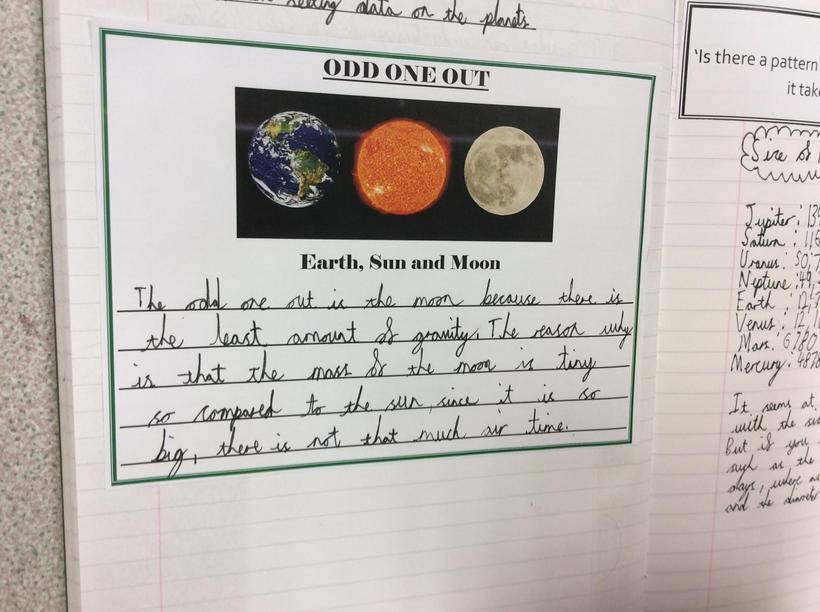 seeing data on the planets
ODD ONE OUT
Earth, Sun and Moon
The odd one out is the moon because there is
the least amount of gravity. The reason why
is that the mass of the moon is tiny
so compared to the sun, since it is so
big, there is not that much air time.
'Is there a pattern
it take
Size of
Jupiter:
Saturn:
Uranus:
Neptune:
Earth:
Venus:
Mars: 6780
Mercury:
It seems at
with the
But if you
such as the
days, where
and the diameter